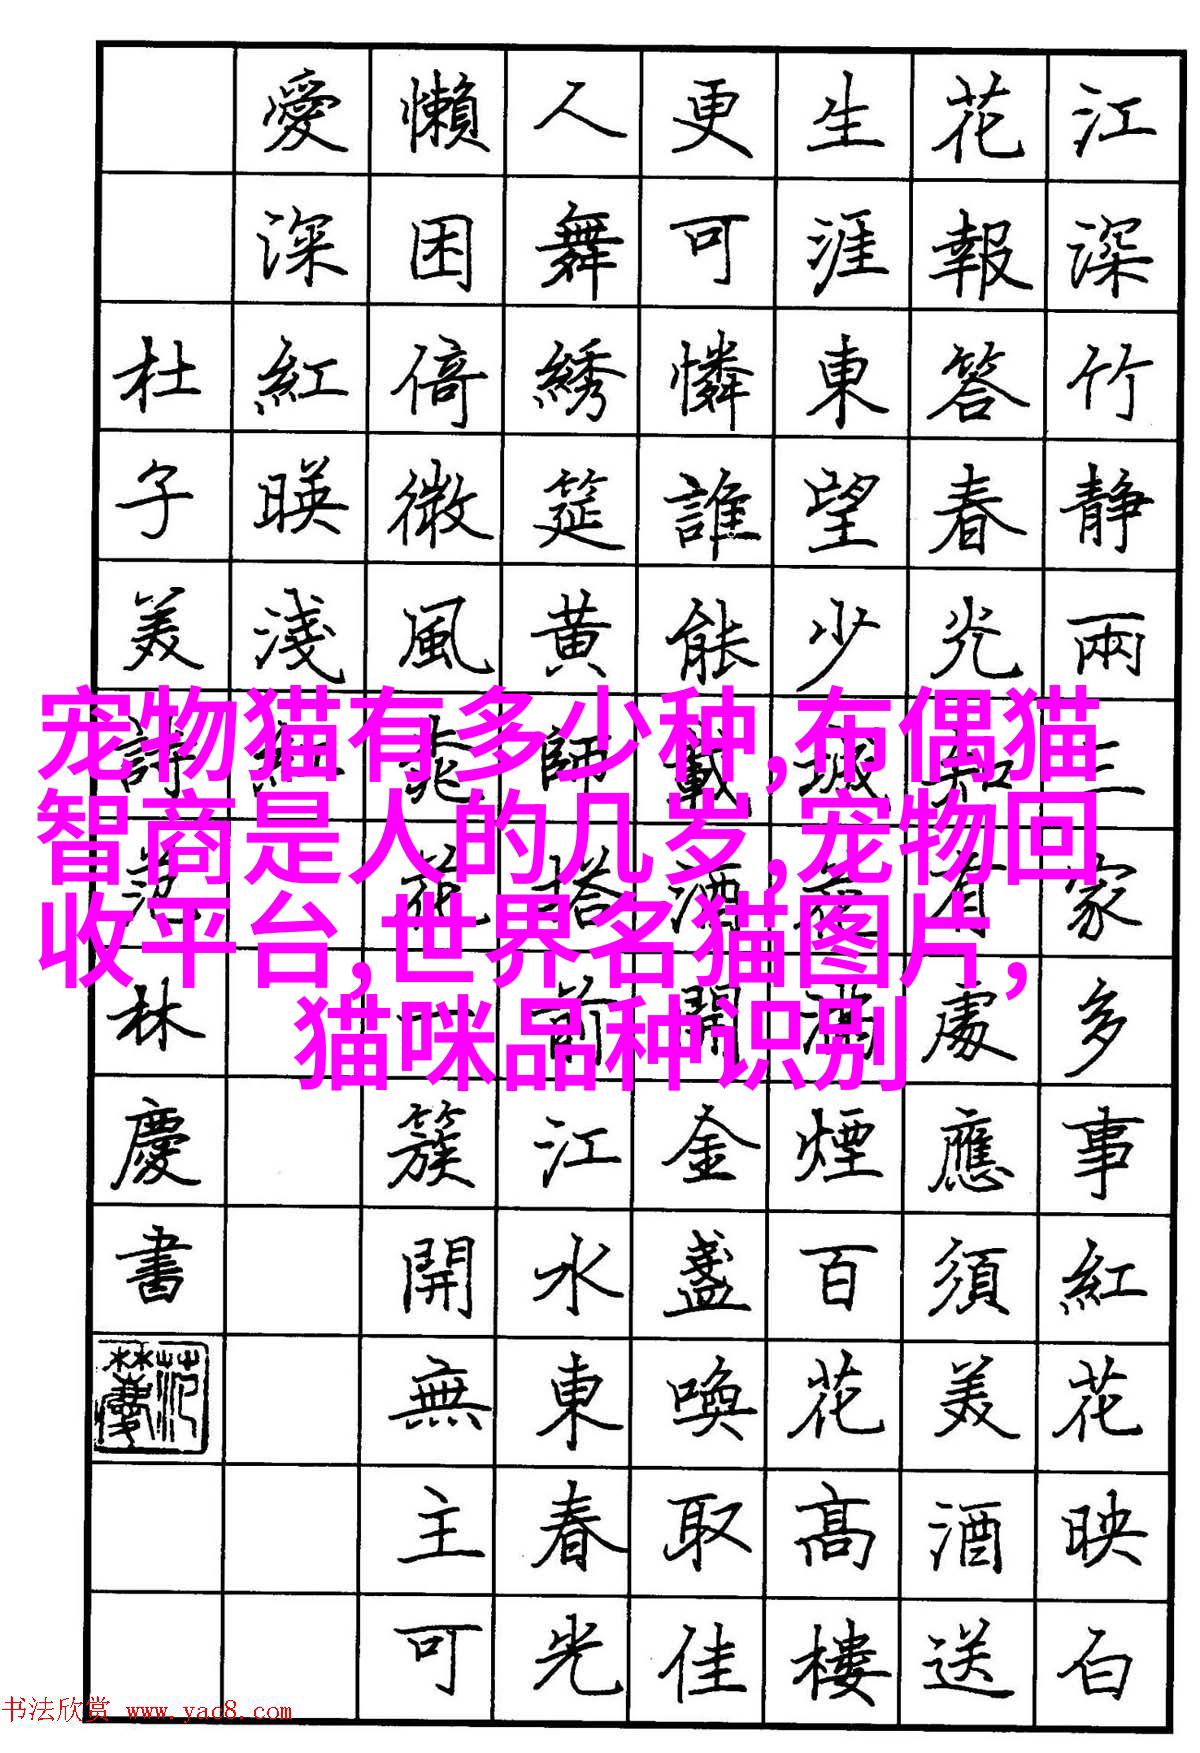 江深竹静兩三家多事紅花映白
花報答春光知有處應須美酒送
生涯東望少城花滿煙百花高樓
更可憐誰能載酒開金盞喚取佳
人舞綉筵黄師塔前江水東春光
懶困倚微風桃花一簇開無主可
愛深紅暎淺紅
杜子美詩范林慶書
宠物猫有多少种,布偶猫
智商是人的几岁,宠物回
收平台,世界名猫图片,
猫咪品种识别
书法欣赏 www.yac8.com